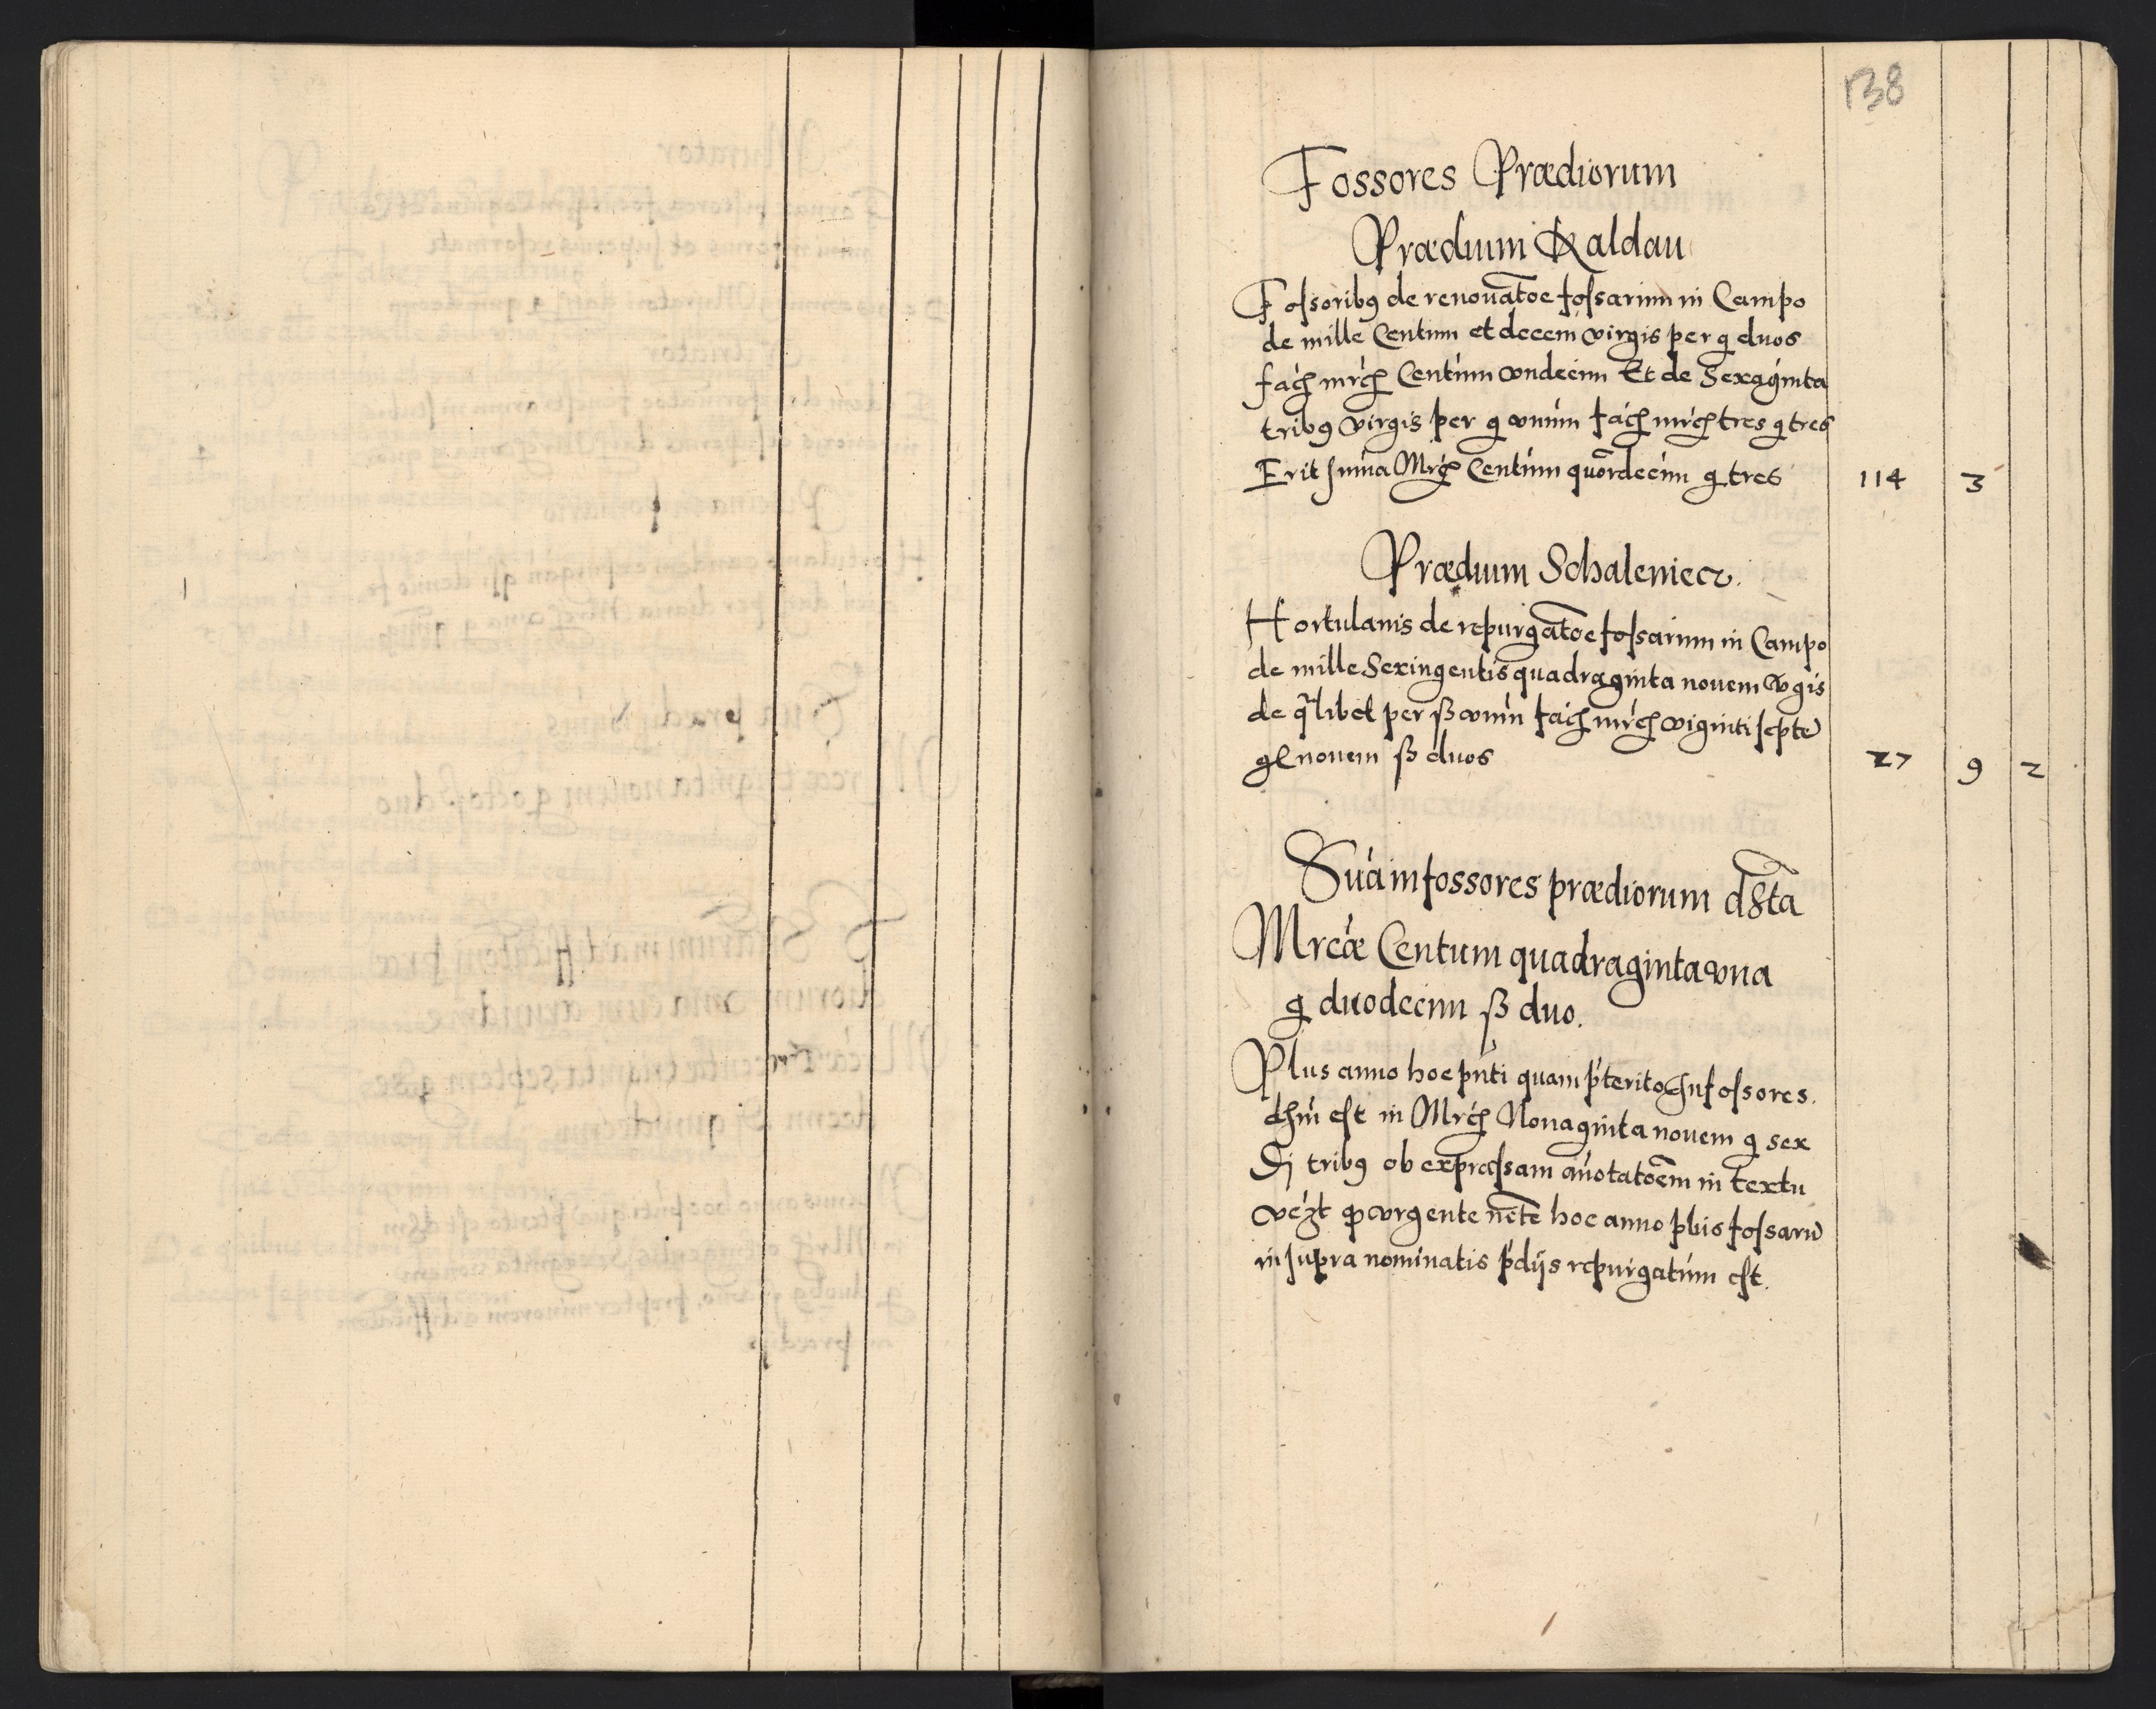 138
Fossores Prædiorum
Prædium Kaldau
Foſsoribꝰ de renouatõe foſsarum in Campo
de mille Centum et decem virgis per g duos
fac̃ mrc̃ Centum vndecim Et de Sexaginta
tribꝰ virgis per g vnum fac̃ mrc̃ tres g tres
Erit ſum̃a Mrc̃ Centum quõrdecim g tres 114 3
Prædium Schaleniecz.
Hortulanis de repurgatõe foſsarum in Campo
de mille Sexingentis quadraginta nouem ṽgis
de q̃libet per ß vnum fac̃ mrc̃ viginti ſepte͂
g nouem ß duos 27 9 2
Sum̃a in fossores prædiorum d͂sta
Mrcæ Centum quadraginta vna
g duodecim ß duo.
Plus anno hoc pñti quam p̃terito In foſsores.
eſt in Mrc̃ Nonaginta nouem g sex
tribꝰ ob expreſsam añotatõem in textu
vrgente hoc anno foſsaru͂
in ſupra nominatis p̃dijs repurgatum eſt.